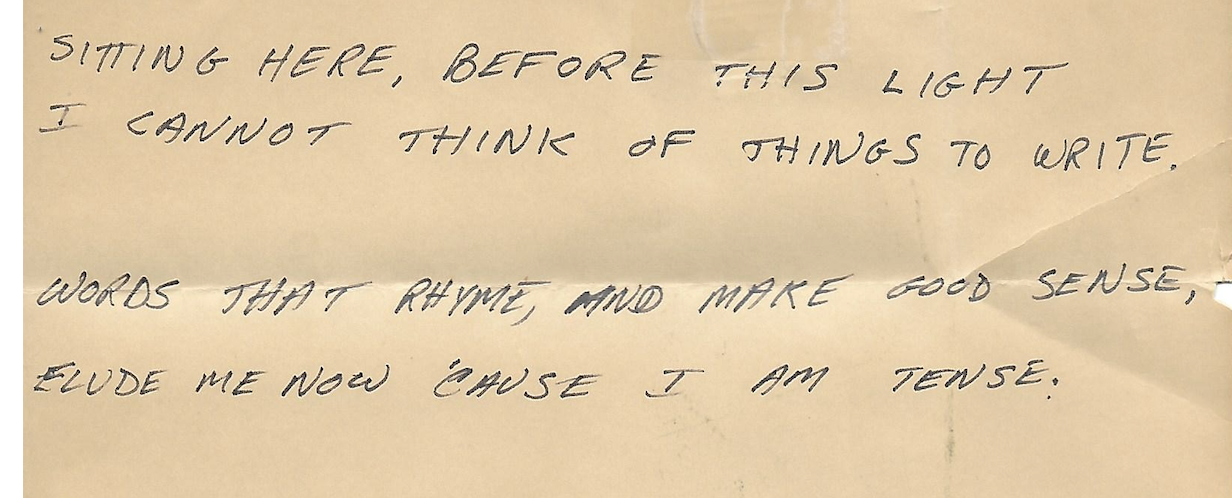 SITTING HERE, BEFORE THIS LIGHT
I CANNOT THINK OF THINGS TO WRITE.
WORDS THAT RHYME, AND MAKE GOOD SENSE,
ELUDE ME NOW 'CAUSE I AM TENSE.